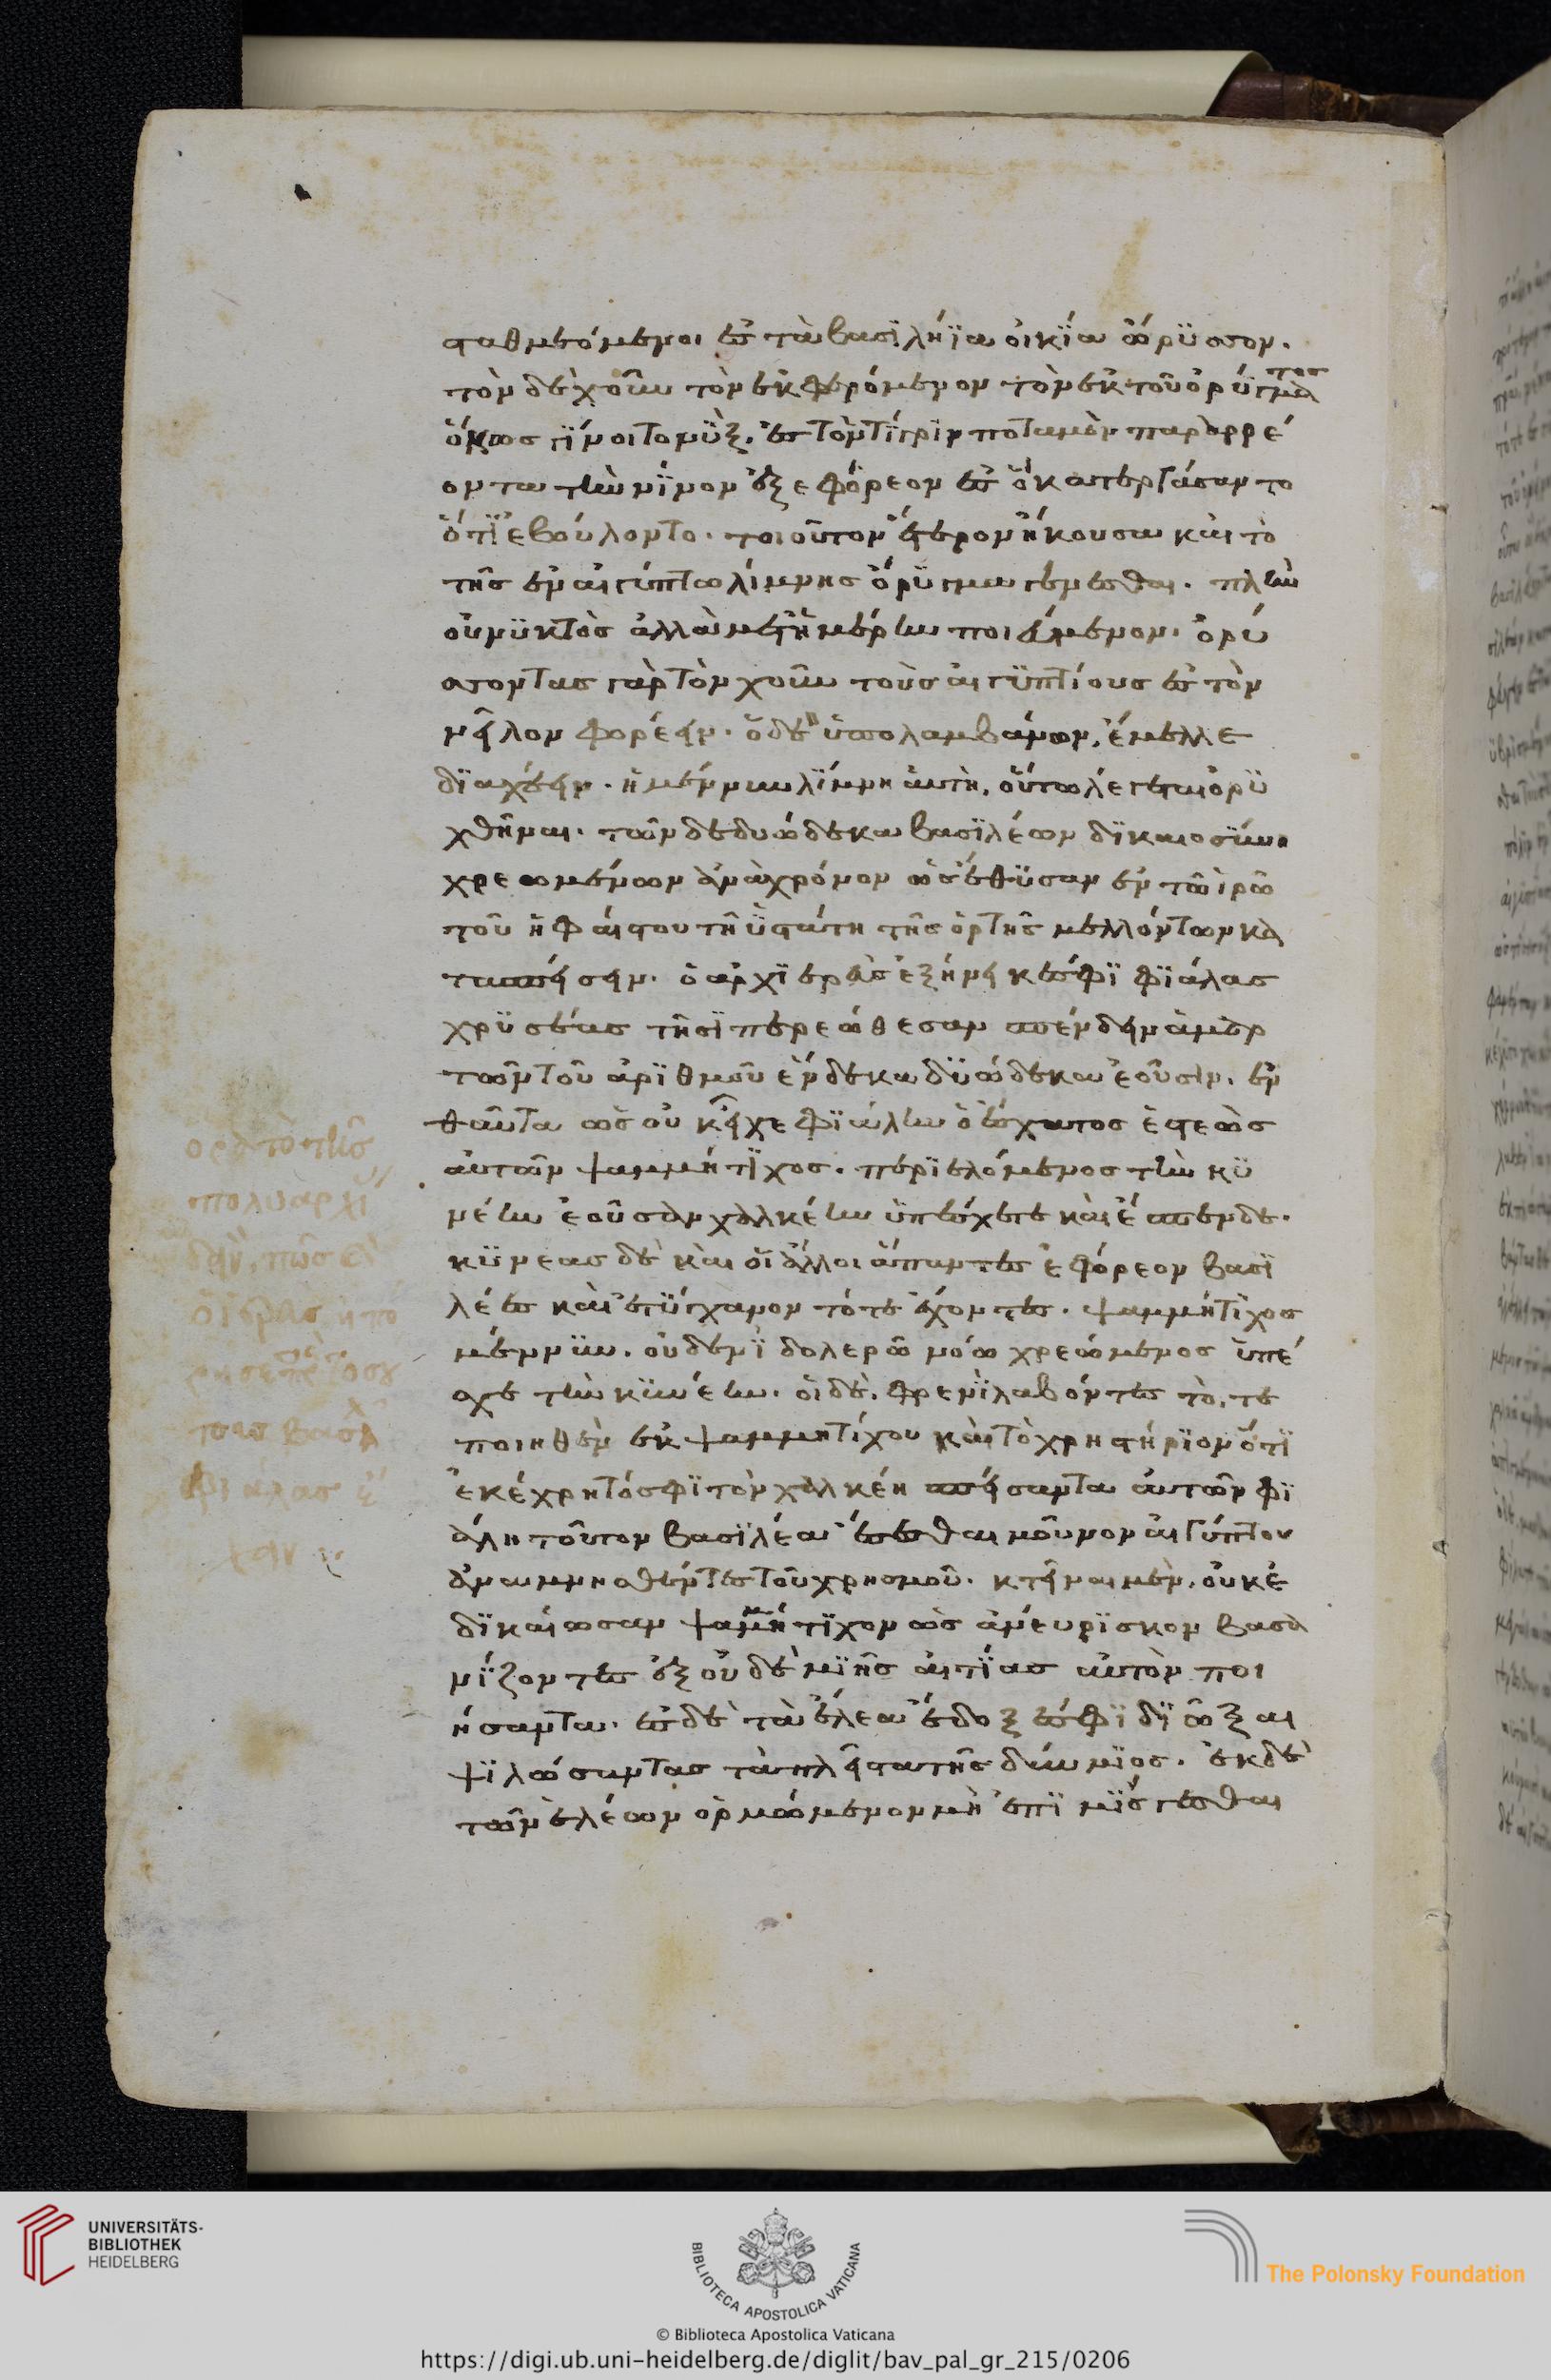 σταθμεόμενοι ἐς τὰ βασιλήϊα οἰκία ὤρυσσον.
τὸν δὲ χοῦν τὸν ἐκφερόμενον τὸν ἐκ τοῦ ὀρύγματος
ὅκως γίνοιτο νύξ. ἐς τὸν τίγριν ποταμὸν παραρρέ
οντα τὴν νίνον ἐξεφόρεον ἐς ὃ κατεργάσαντο
ὅτι ἐβούλοντο. τοιοῦτον ἕτερον ἤκουσα καὶ τὸ
τῆς ἐν αἰγύπτω λίμνης ὄρυγμα γενέσθαι. πλὴν
οὐ νυκτὸς ἀλλὰ μετ' ἡμέρην ποιεύμενον. ὀρύ
σσοντας γὰρ τὸν χοῦν τοὺς αἰγυπτίους ἐς τὸν
νεῖλον φορέειν. ὁ δὲ ὑπολαμβάνων, ἔμελλε
διαχέειν. ἡ μέν νυν λίμνη αὐτὴ, οὕτω λέγεται ὀρυ
χθῆναι. τῶν δὲ δυώδεκα βασιλέων δικαιοσύνη
χρεωμένων ἀνὰ χρόνον ὡς ἔθυσαν ἐν τῶ ἱρῶ
τοῦ ἡφαίστου τῆ ὑστάτη τῆς ὁρτῆς μελλόντων κα
τασπείσειν. ὁ ἀρχιερεὺς ἐξήνεικέ σφι φιάλας
χρυσέας τῆσί περ ἐώθεσαν σπένδειν ἁμαρ
τὼν τοῦ ἀριθμοῦ ἕνδεκα δυώδεκα ἐοῦσιν. ἐν
θαῦτα ὡς οὐκ εἶχε φιάλην ὁ ἔσχατος ἑστεὼς
αὐτῶν ψαμμήτιχος. περιελόμενος τὴν κυ
νέην ἐοῦσαν χαλκέην ὑπέσχετε καὶ ἔσπενδε.
κυνέας δὲ καὶ οἱ ἄλλοι ἅπαντες ἐφόρεον βασι
λέες καὶ ἐτύγχανον τότε ἔχοντες. ψαμμήτιχος
μέν νυν. οὐδενὶ δολερῶ νόω χρεώμενος ὑπέ
σχε τὴν κυνέην. οἱ δὲ, φρενὶ λαβόντες τό, τε
ποιηθὲν ἐκ ψαμμητίχου καὶ τὸ χρηστήριον ὅτι
ἐκέχρητό σφι τὸν χαλκέη σπείσαντα αὐτῶν φι
άλη τοῦτον βασιλέα ἔσεσθαι μοῦνον αἰγύπτου
ἀναμνησθέντες τοῦ χρησμοῦ. κτεῖναι μὲν, οὐκ ἐ
δικαίωσαν ψαμμήτιχον ὡς ἀνεύρισκον βασα
νίζοντες ἐξ οὐδεμιῆς αἰτίας αὐτὸν ποι
ήσαντα. ἐς δὲ τὰ ἕλεα ἔδοξέ σφι διῶξαι
ψιλώσαντας τὰ πλεῖστα τῆς δυνάμιος. ἐκ δὲ
τῶν ἑλέων ὁρμώμενον μὴ ἐπιμίσγεσθαι
UNIVERSITÄTS-
BIBLIOTHEK
HEIDELBERG
BIBLIOTECA APOSTOLICA VATICANA
The Polonsky Foundation
© Biblioteca Apostolica Vaticana
https://digi.ub.uni-heidelberg.de/diglit/bav_pal_gr_215/0206